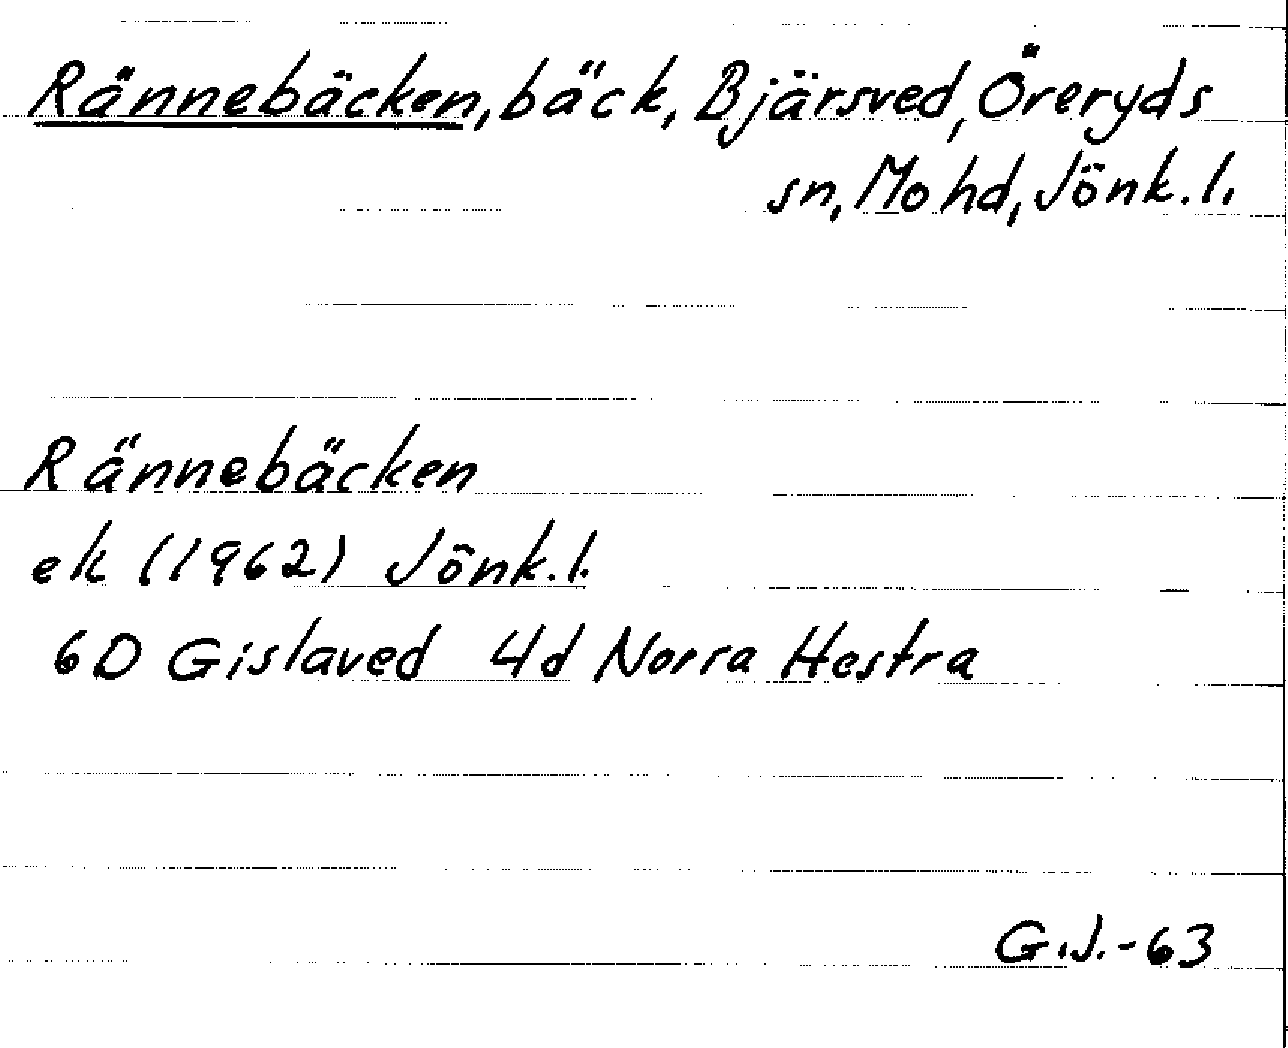 Rännebäcken, bäck, Bjärsved, Öreryds
sn, Mo hd, Jönk.l.
Rännebäcken
ek (1962) Jönk.l.
6D Gislaved 4d Norra Hestra
G.J.-63